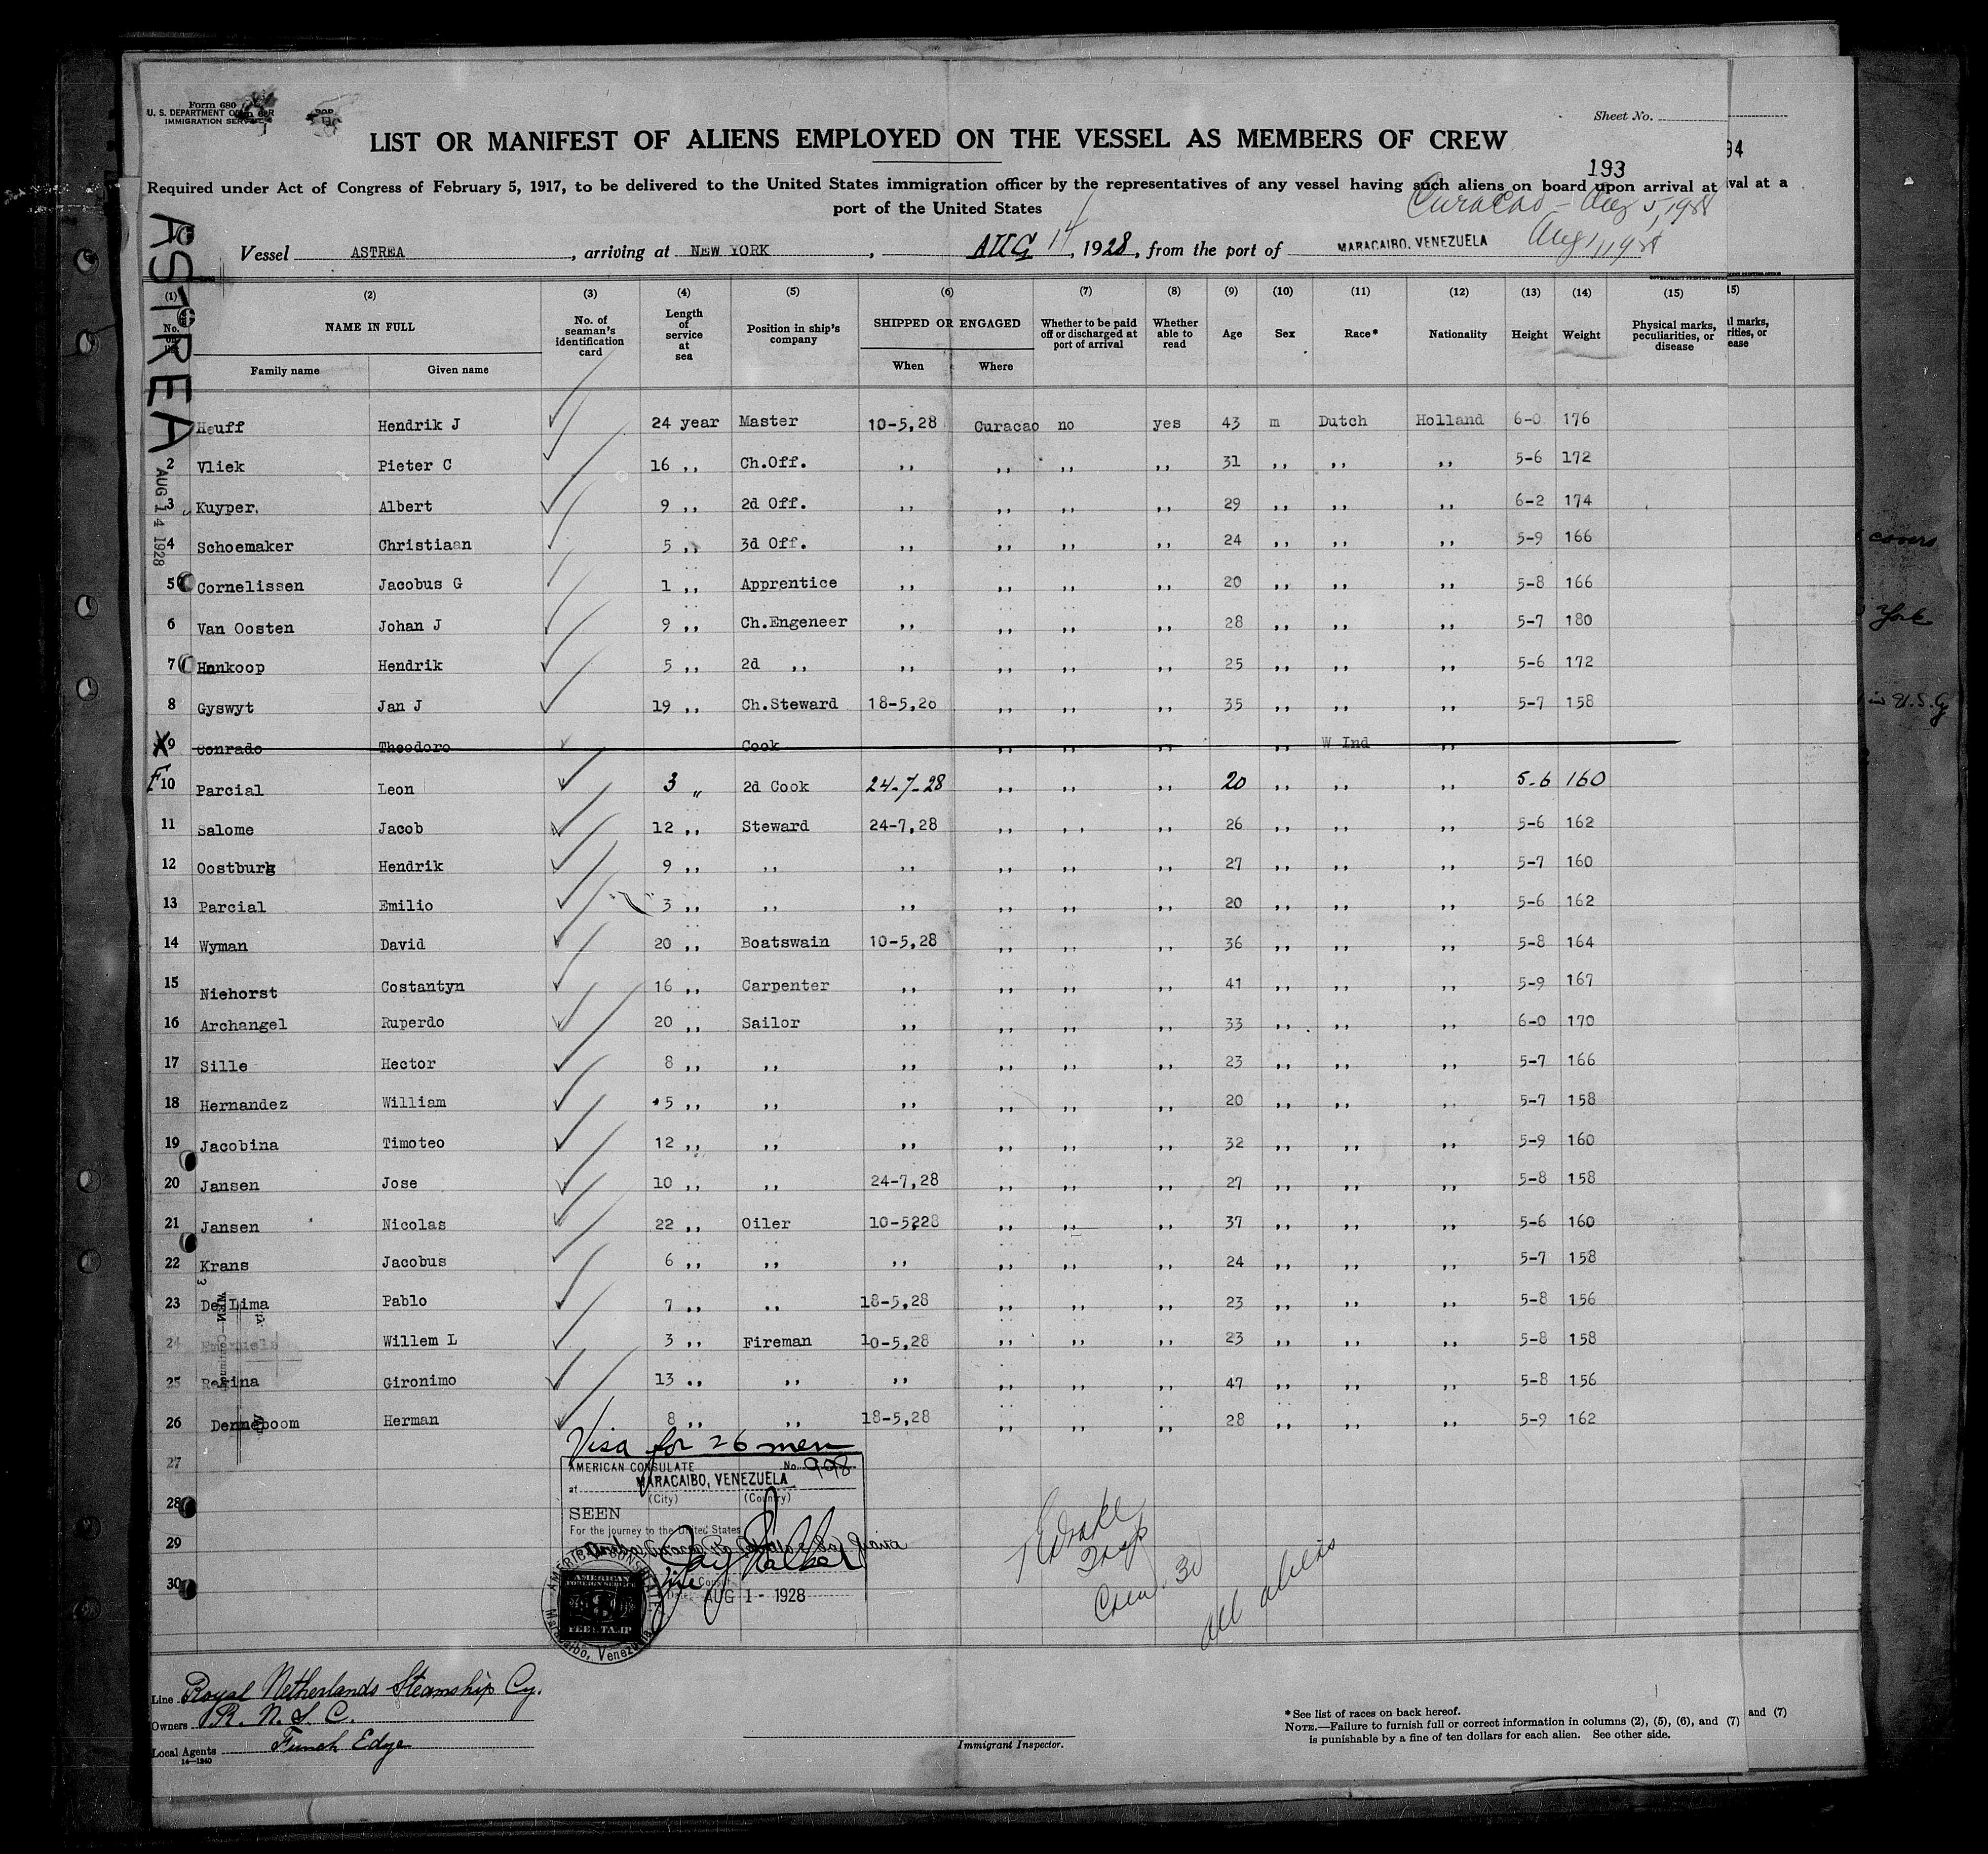 Form 680
U. S. DEPARTMENT OF LABOR
IMMIGRATION SERVICE
Sheet No.
LIST OR MANIFEST OF ALIENS EMPLOYED ON THE VESSEL AS MEMBERS OF CREW
193
94
Required under Act of Congress of February 5, 1917, to be delivered to the United States immigration officer by the representatives of any vessel having such aliens on board upon arrival at
ival at a
port of the United States
Curacao - Aug 5, 1928
Vessel ASTREA, arriving at NEW YORK, AUG 14, 1928, from the port of MARACAIBO, VENEZUELA Aug 1, 1928
ASTREA
AUG 14 1928
(1) (2) (3) (4) (5) (6) (7) (8) (9) (10) (11) (12) (13) (14) (15)
NAME IN FULL
Family name Given name
No. of seaman's identification card
Length of service at sea
Position in ship's company
SHIPPED OR ENGAGED
When Where
Whether to be paid off or discharged at port of arrival
Whether able to read
Age Sex Race* Nationality Height Weight
Physical marks, peculiarities, or disease
Heuff Hendrik J 24 year Master 10-5,28 Curacao no yes 43 m Dutch Holland 6-0 176
2 Vliek Pieter C 16 ,, Ch.Off. ,, ,, ,, ,, 31 ,, ,, ,, 5-6 172
3 Kuyper. Albert 9 ,, 2d Off. ,, ,, ,, ,, 29 ,, ,, ,, 6-2 174
4 Schoemaker Christiaan 5 ,, 3d Off. ,, ,, ,, ,, 24 ,, ,, ,, 5-9 166
5 Cornelissen Jacobus G 1 ,, Apprentice ,, ,, ,, ,, 20 ,, ,, ,, 5-8 166
6 Van Oosten Johan J 9 ,, Ch.Engeneer ,, ,, ,, ,, 28 ,, ,, ,, 5-7 180
7 Hankoop Hendrik 5 ,, 2d ,, ,, ,, ,, ,, 25 ,, ,, ,, 5-6 172
8 Gyswyt Jan J 19 ,, Ch.Steward 18-5,28 ,, ,, ,, 35 ,, ,, ,, 5-7 158
X 9 Conrado Theodoro Cook ,, ,, ,, ,, W Ind ,,
F 10 Parcial Leon 3 ,, 2d Cook 24-7-28 ,, ,, ,, 20 ,, ,, ,, 5-6 160
11 Salome Jacob 12 ,, Steward 24-7,28 ,, ,, ,, 26 ,, ,, ,, 5-6 162
12 Oostburg Hendrik 9 ,, ,, ,, ,, ,, ,, 27 ,, ,, ,, 5-7 160
13 Parcial Emilio 3 ,, ,, ,, ,, ,, ,, 20 ,, ,, ,, 5-6 162
14 Wyman David 20 ,, Boatswain 10-5,28 ,, ,, ,, 36 ,, ,, ,, 5-8 164
15 Niehorst Costantyn 16 ,, Carpenter ,, ,, ,, ,, 41 ,, ,, ,, 5-9 167
16 Archangel Ruperdo 20 ,, Sailor ,, ,, ,, ,, 33 ,, ,, ,, 6-0 170
17 Sille Hector 8 ,, ,, ,, ,, ,, ,, 23 ,, ,, ,, 5-7 166
18 Hernandez William 5 ,, ,, ,, ,, ,, ,, 20 ,, ,, ,, 5-7 158
19 Jacobina Timoteo 12 ,, ,, ,, ,, ,, ,, 32 ,, ,, ,, 5-9 160
20 Jansen Jose 10 ,, ,, 24-7,28 ,, ,, ,, 27 ,, ,, ,, 5-8 158
21 Jansen Nicolas 22 ,, Oiler 10-5228 ,, ,, ,, 37 ,, ,, ,, 5-6 160
22 Krans Jacobus 6 ,, ,, ,, ,, ,, ,, 24 ,, ,, ,, 5-7 158
23 De Lima Pablo 7 ,, ,, 18-5,28 ,, ,, ,, 23 ,, ,, ,, 5-8 156
24 Emanuels Willem L 3 ,, Fireman 10-5,28 ,, ,, ,, 23 ,, ,, ,, 5-8 158
25 Regina Gironimo 13 ,, ,, ,, ,, ,, ,, 47 ,, ,, ,, 5-8 156
26 Denneboom Herman 8 ,, ,, 18-5,28 ,, ,, ,, 28 ,, ,, ,, 5-9 162
27
28
29
30
Visa for 26 men
AMERICAN CONSULATE No. 998
at MARACAIBO, VENEZUELA
(City) (Country)
SEEN
For the journey to the United States
Vice Consul
AUG 1 - 1928
AMERICAN CONSULATE
Maracaibo, Venezuela
AMERICAN
FOREIGN SERVICE
FEE STAMP
Crew 30
all aliens
covers
York
in U.S.
Line Royal Netherlands Steamship Cy.
Owners R. N. S. C.
Local Agents Funch Edye
14-1240
Immigrant Inspector.
*See list of races on back hereof.
NOTE.—Failure to furnish full or correct information in columns (2), (5), (6), and (7)
and (7)
is punishable by a fine of ten dollars for each alien. See other side.